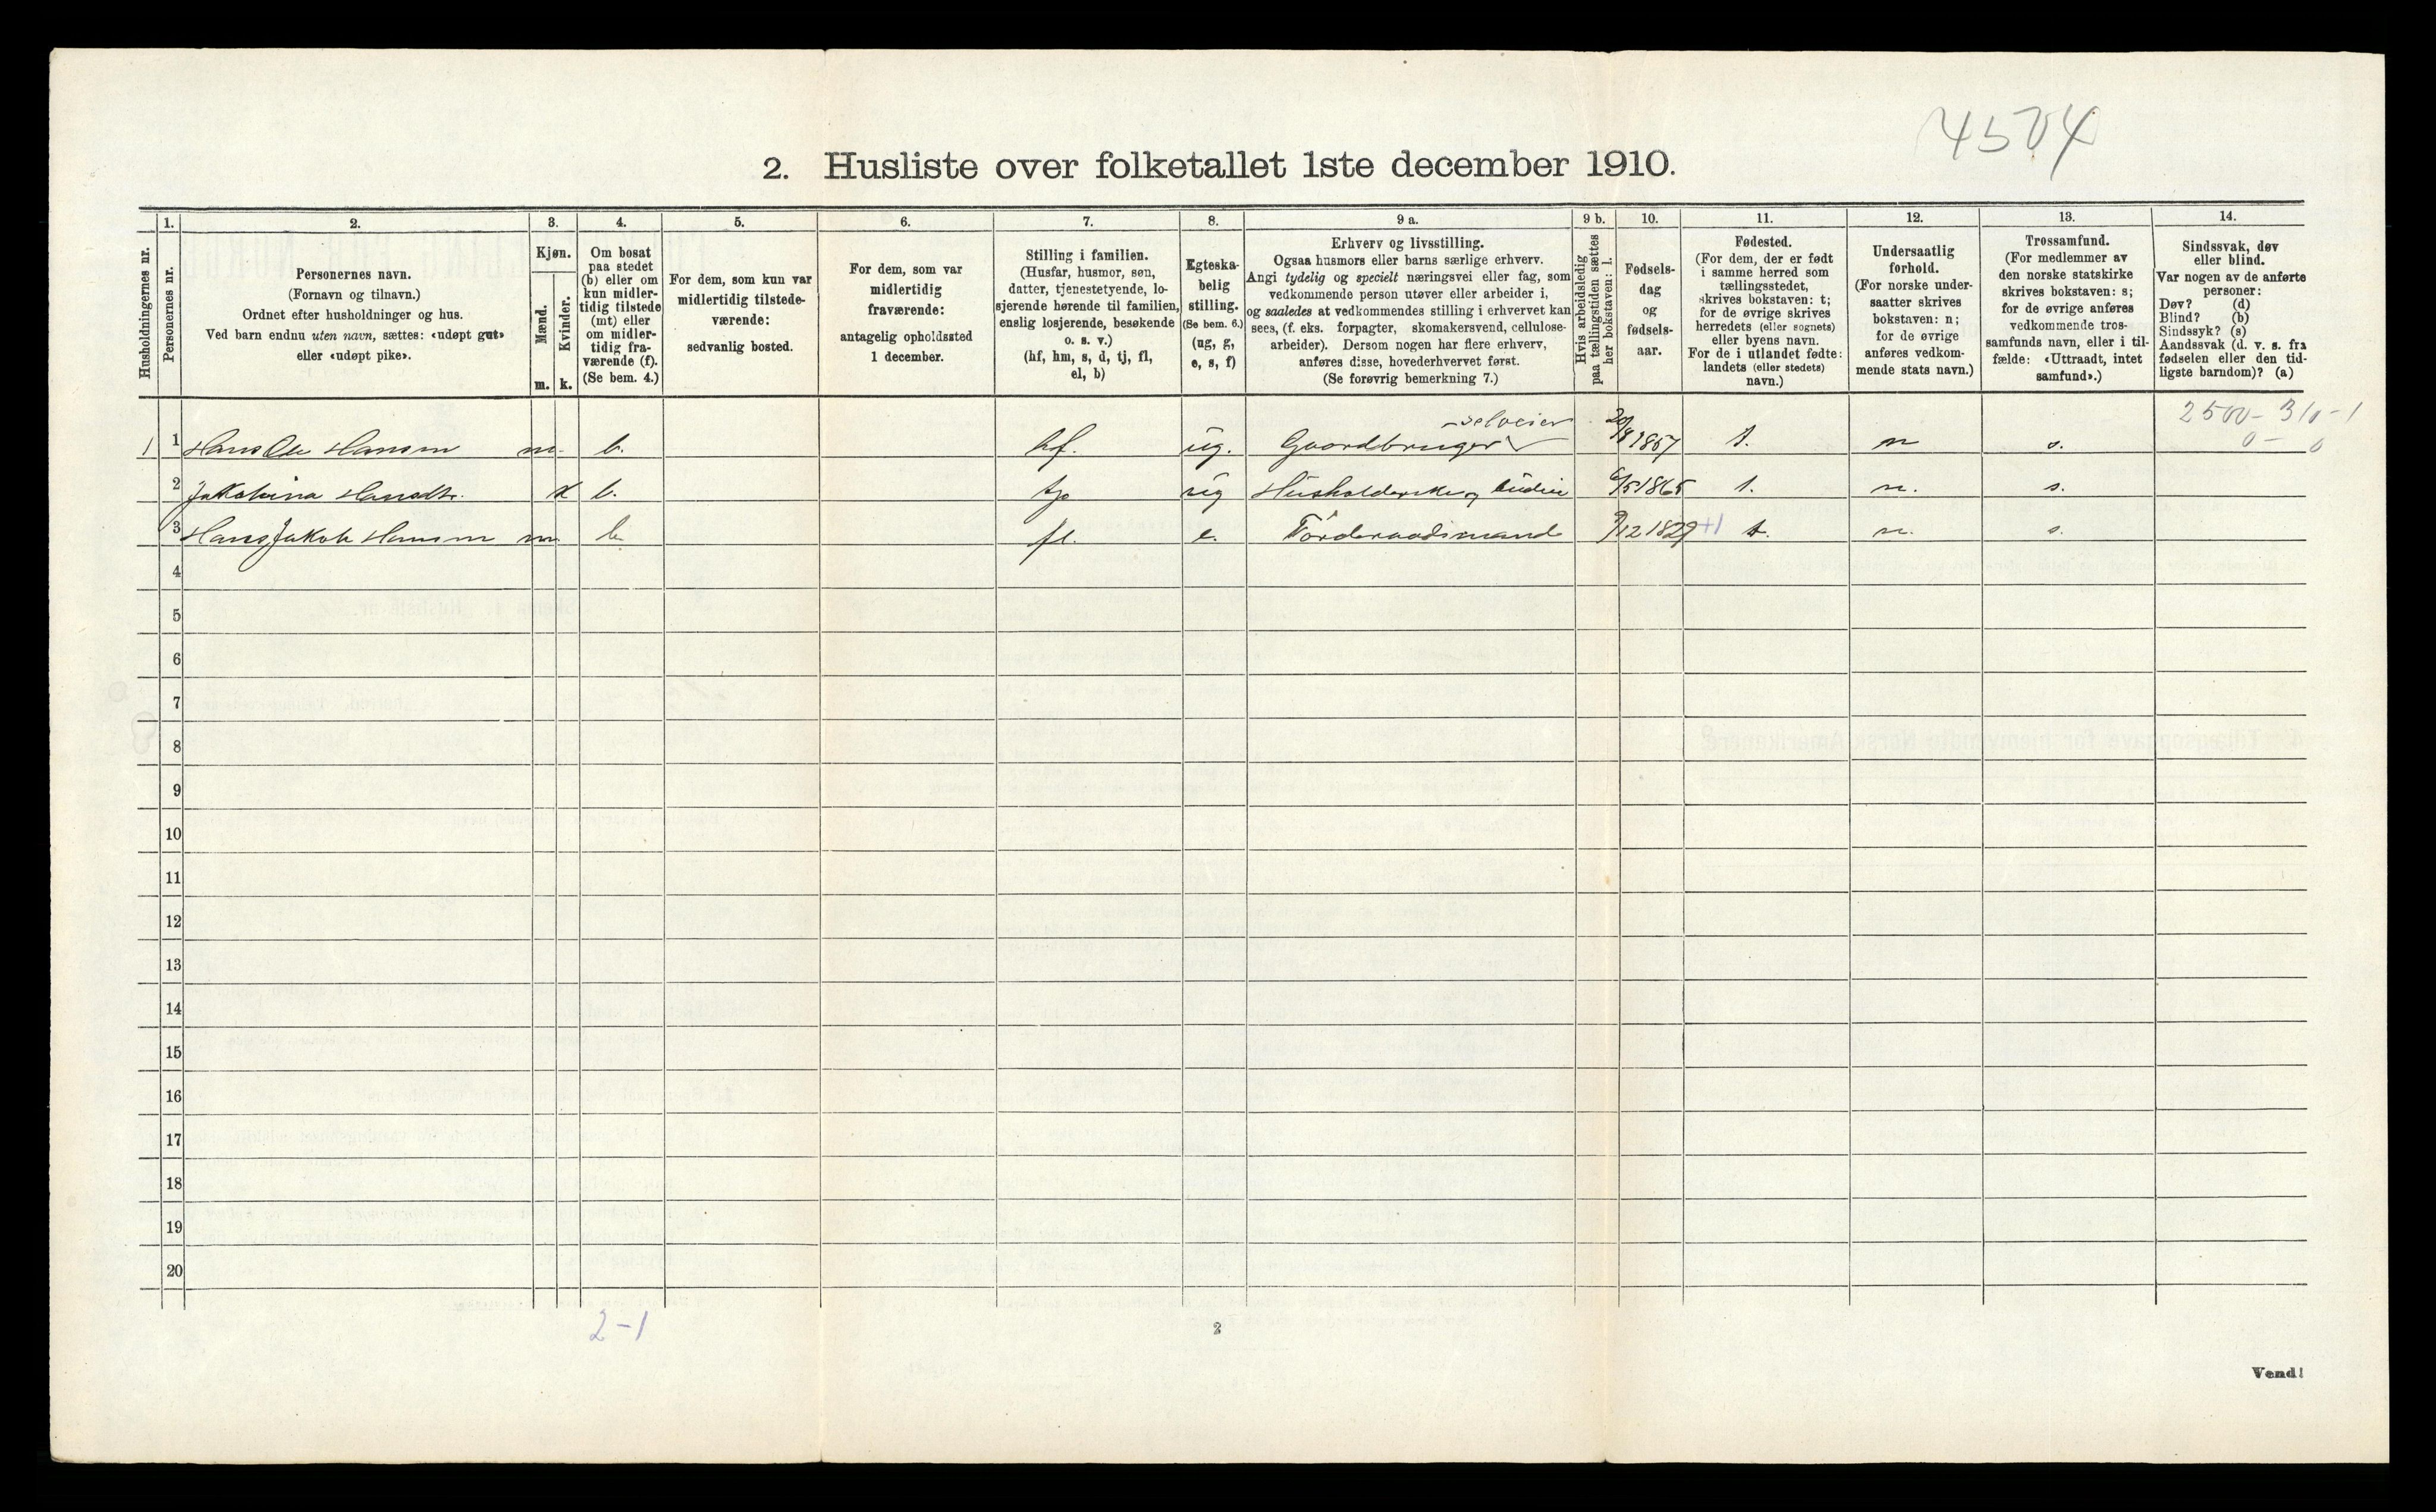 4504
2. Husliste over folketallet 1ste december 1910.
Husholdningernes nr.
1.
Personernes nr.
2.
Personernes navn.
(Fornavn og tilnavn.)
Ordnet efter husholdninger og hus.
Ved barn endnu uten navn, sættes: «udøpt gut»
eller «udøpt pike».
3.
Kjøn.
Mænd.
Kvinder.
m. k.
4.
Om bosat
paa stedet
(b) eller om
kun midler-
tidig tilstede
(mt) eller
om midler-
tidig fra-
værende (f).
(Se bem. 4.)
5.
For dem, som kun var
midlertidig tilstede-
værende:
sedvanlig bosted.
6.
For dem, som var
midlertidig
fraværende:
antagelig opholdssted
1 december.
7.
Stilling i familien.
(Husfar, husmor, søn,
datter, tjenestetyende, lo-
sjerende hørende til familien,
enslig losjerende, besøkende
o. s. v.)
(hf, hm, s, d, tj, fl,
el, b)
8.
Egteska-
belig
stilling.
(Se bem. 6.)
(ug, g,
e, s, f)
9 a.
Erhverv og livsstilling.
Ogsaa husmors eller barns særlige erhverv.
Angi tydelig og specielt næringsvei eller fag, som
vedkommende person utøver eller arbeider i,
og saaledes at vedkommendes stilling i erhvervet kan
sees, (f. eks. forpagter, skomakersvend, cellulose-
arbeider). Dersom nogen har flere erhverv,
anføres disse, hovederhvervet først.
(Se forøvrig bemerkning 7.)
9 b.
Hvis arbeidsledig
paa tællingstiden sættes
her bokstaven: l.
10.
Fødsels-
dag
og
fødsels-
aar.
11.
Fødested.
(For dem, der er født
i samme herred som
tællingsstedet,
skrives bokstaven: t;
for de øvrige skrives
herredets (eller sognets)
eller byens navn.
For de i utlandet fødte:
landets (eller stedets)
navn.)
12.
Undersaatlig
forhold.
(For norske under-
saatter skrives
bokstaven: n;
for de øvrige
anføres vedkom-
mende stats navn.)
13.
Trossamfund.
(For medlemmer av
den norske statskirke
skrives bokstaven: s;
for de øvrige anføres
vedkommende tros-
samfunds navn, eller i til-
fælde: «Uttraadt, intet
samfund».)
14.
Sindssvak, døv
eller blind.
Var nogen av de anførte
personer:
Døv? (d)
Blind? (b)
Sindssyk? (s)
Aandssvak (d. v. s. fra
fødselen eller den tid-
ligste barndom)? (a)
selveier 2500-310-1
1 1 Hans Ole Hansen m. b. hf. ug. Gaardbruger 1857 t. n s. 0-0
2 Jakobina Hansdtr. k b. tj ug Husholderske og budeie 6/5 1865 t. n. s.
3 Hans Jakob Hansen m b. fl. e. Førderaadsmand 9/12 1829 +1 t. n. s.
4
5
6
7
8
9
10
11
12
13
14
15
16
17
18
19
20
2-1
2
Vend!